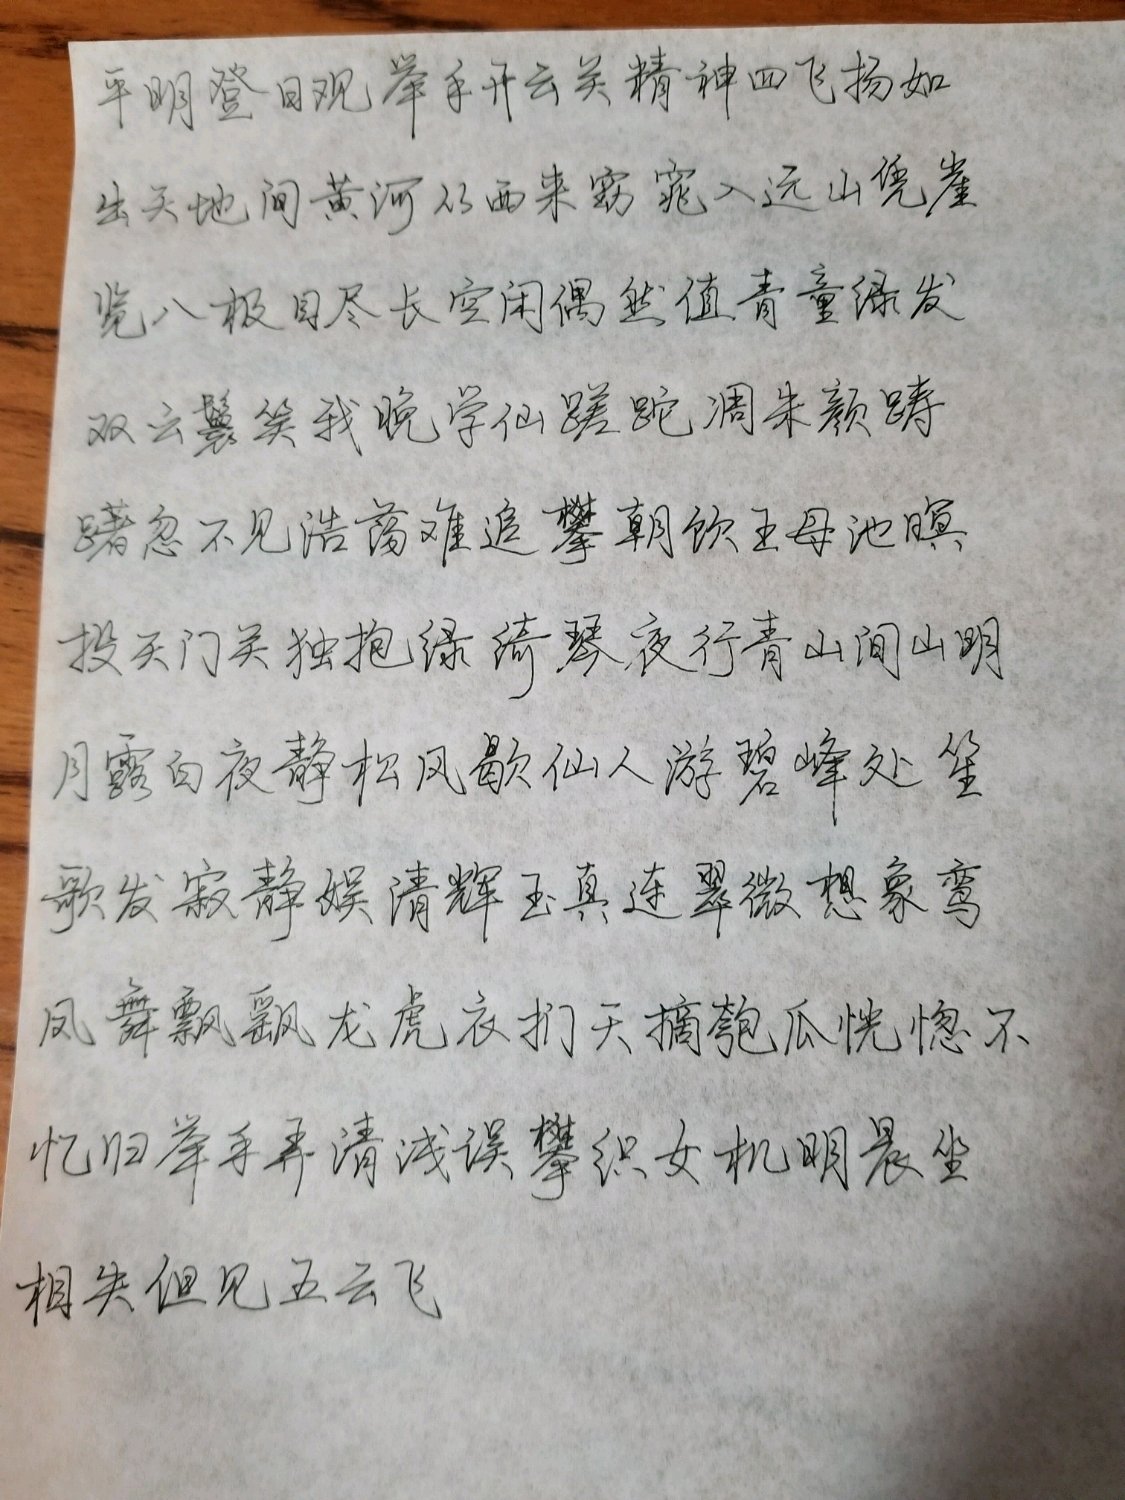 平明登日观举手开云关精神四飞扬如
出天地间黄河从西来窈窕入远山凭崖
览八极目尽长空闲偶然值青童绿发
双云鬟笑我晚学仙蹉跎凋朱颜踌
躇忽不见浩荡难追攀朝饮王母池暝
投天门关独抱绿绮琴夜行青山间山明
月露白夜静松风歇仙人游碧峰处笙
歌发寂静娱清辉玉真连翠微想象鸾
凤舞飘飖龙虎衣扪天摘匏瓜恍惚不
忆归举手弄清浅误攀织女机明晨坐
相失但见五云飞